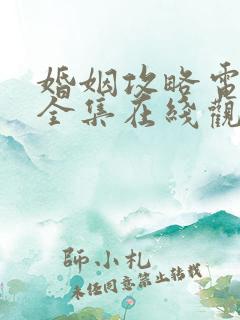 婚姻攻略電
全集在綫觀
師小札
未经同意禁止转载